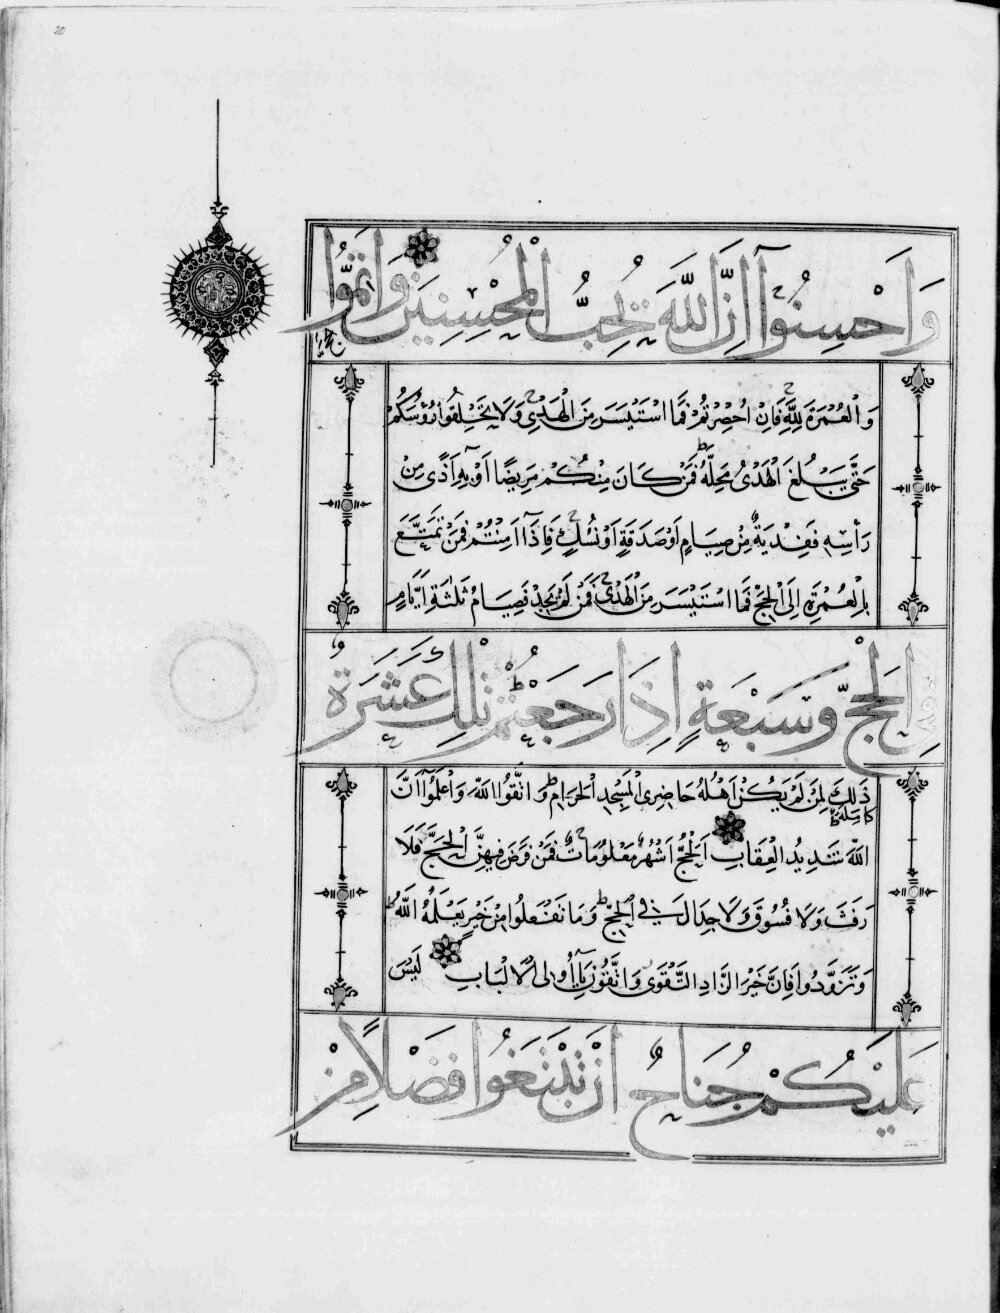 20
وَأَحْسِنُوٓا إِنَّ اللَّهَ يُحِبُّ الْمُحْسِنِينَ وَأَتِمُّوا
الْحَجَّ
وَالْعُمْرَةَ لِلَّهِ فَإِنْ أُحْصِرْتُمْ فَمَا اسْتَيْسَرَ مِنَ الْهَدْيِ وَلَا تَحْلِقُوا رُؤُسَكُمْ
حَتَّى يَبْلُغَ الْهَدْيُ مَحِلَّهُ فَمَنْ كَانَ مِنْكُمْ مَرِيضًا أَوْ بِهِ أَذًى مِنْ
رَأْسِهِ فَفِدْيَةٌ مِنْ صِيَامٍ أَوْ صَدَقَةٍ أَوْ نُسُكٍ فَإِذَا أَمِنْتُمْ فَمَنْ تَمَتَّعَ
بِالْعُمْرَةِ إِلَى الْحَجِّ فَمَا اسْتَيْسَرَ مِنَ الْهَدْيِ فَمَنْ لَمْ يَجِدْ فَصِيَامُ ثَلٰثَةِ أَيَّامٍ
فِي الْحَجِّ وَسَبْعَةٍ إِذَا رَجَعْتُمْ تِلْكَ عَشَرَةٌ
كَامِلَةٌ
ذَلِكَ لِمَنْ لَمْ يَكُنْ أَهْلُهُ حَاضِرِي الْمَسْجِدِ الْحَرَامِ وَاتَّقُوا اللَّهَ وَاعْلَمُوٓا أَنَّ
اللَّهَ شَدِيدُ الْعِقَابِ الْحَجُّ أَشْهُرٌ مَعْلُومَاتٌ فَمَنْ فَرَضَ فِيهِنَّ الْحَجَّ فَلَا
رَفَثَ وَلَا فُسُوقَ وَلَا جِدَالَ فِي الْحَجِّ وَمَا تَفْعَلُوا مِنْ خَيْرٍ يَعْلَمْهُ اللَّهُ
وَتَزَوَّدُوا فَإِنَّ خَيْرَ الزَّادِ التَّقْوَى وَاتَّقُونِ يَا أُولِي الْأَلْبَابِ لَيْسَ
عَلَيْكُمْ جُنَاحٌ أَنْ تَبْتَغُوا فَضْلًا مِنْ